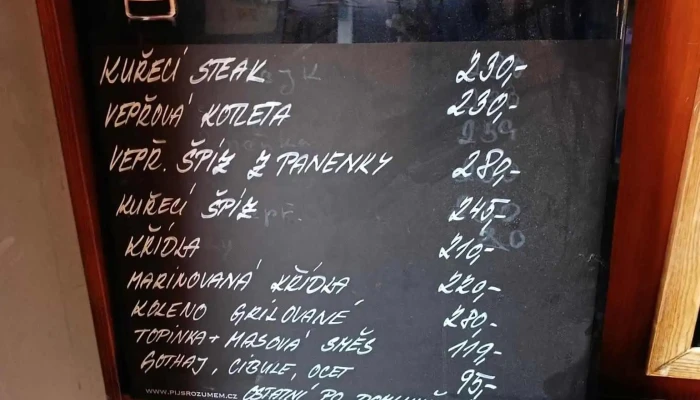 KUŘECÍ STEAK 230,-
VEPŘOVÁ KOTLETA 230,-
VEPŘ. ŠPÍZ Z PANENKY 280,-
KUŘECÍ ŠPÍZ 245,-
KŘÍDLA 210,-
MARINOVANÁ KŘÍDLA 220,-
KOLENO GRILOVANÉ 280,-
TOPINKA + MASOVÁ SMĚS 119,-
GOTHAJ, CIBULE, OCET 95,-
WWW.PIJSROZUMEM.CZ OSTATNÍ PO